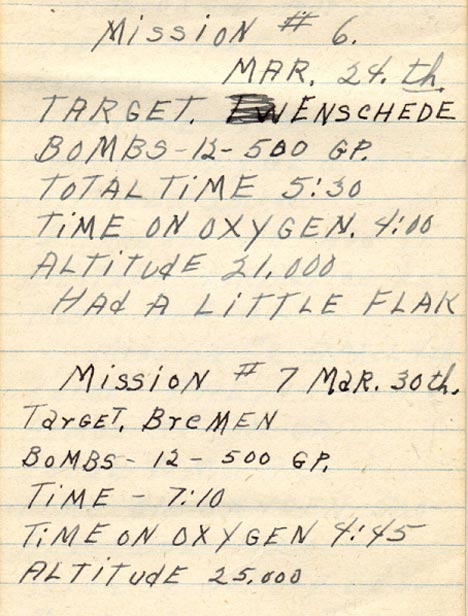 Mission # 6.
MAR. 24.th.
TARGET. ENSCHEDE
BOMBS - 12 - 500 GP.
TOTAL TIME 5:30
TIME ON OXYGEN. 4:00
ALTITUDE 21.000
HAd A LITTLE FLAK
Mission # 7 MaR. 30th.
TarGET. BreMEN
BOMBS - 12 - 500 GP.
TIME - 7:10
TIME ON OXYGEN 4:45
ALTITUdE 25.000